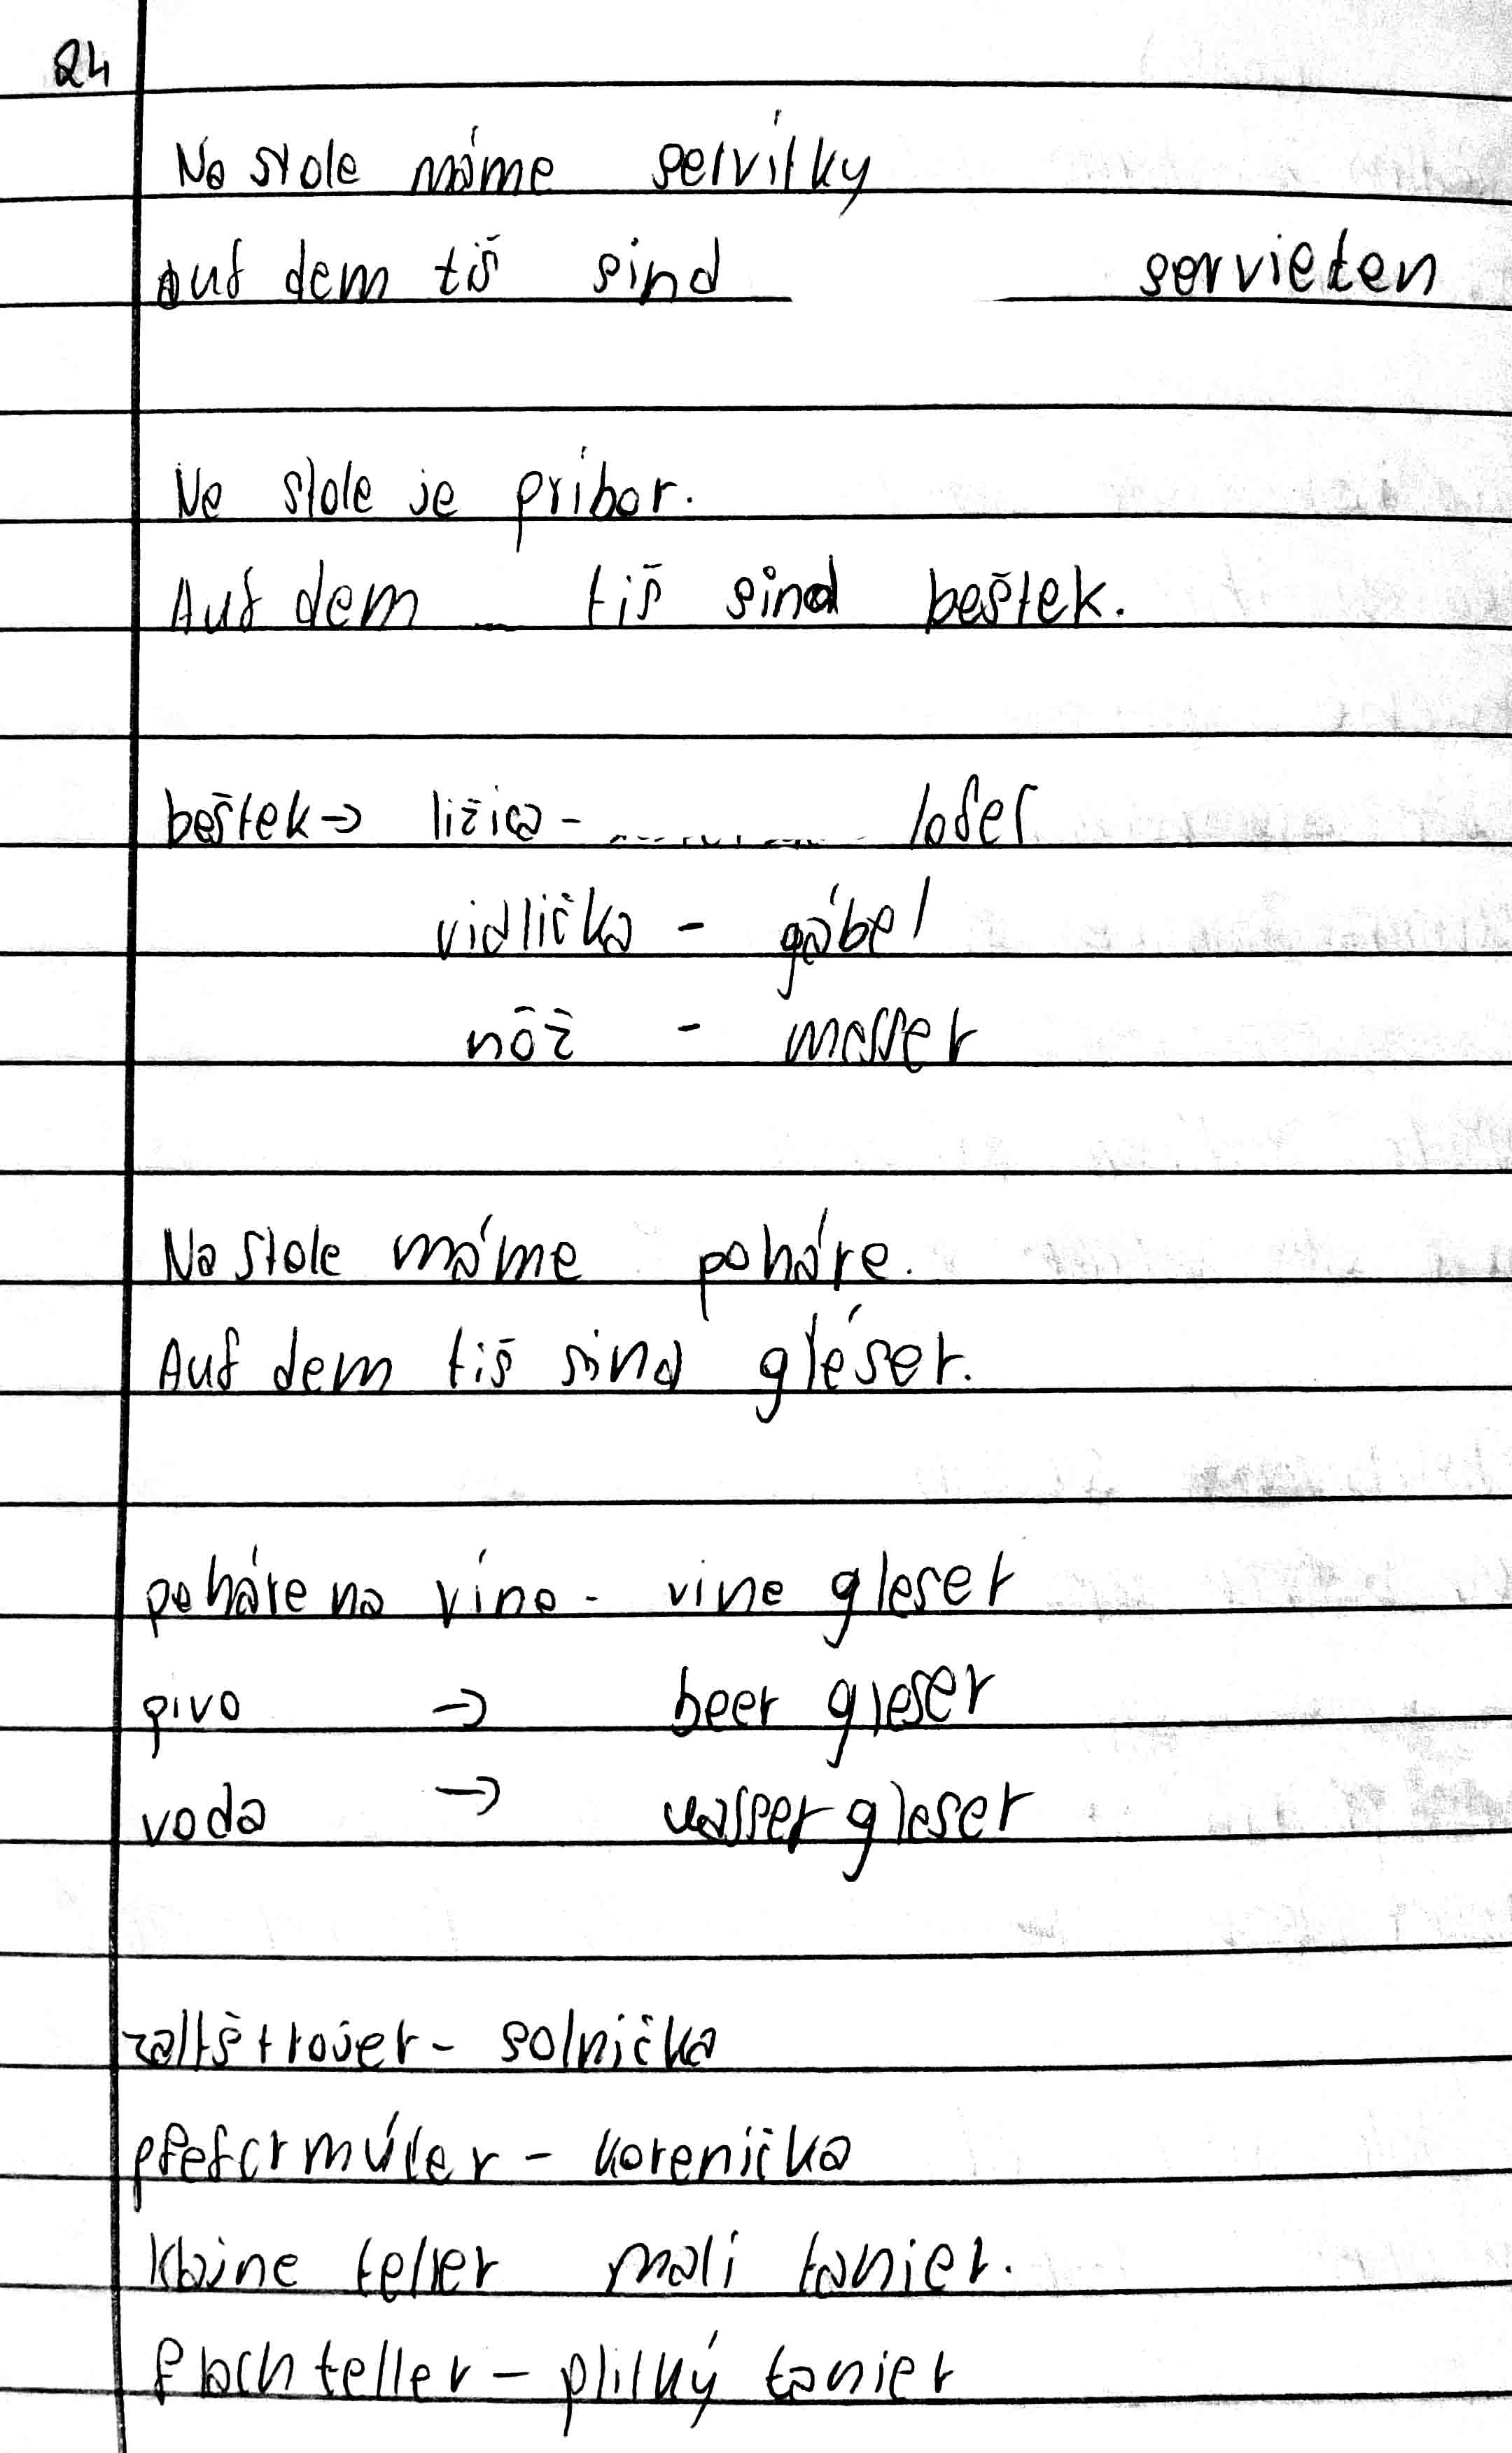 24
Na stole máme servítky
Auf dem tiš sind servieten
Na stole je príbor.
Auf dem tiš sind beštek.
beštek → ližica - lofel
vidlička - gábel
nôž - messer
Na stole máme poháre.
Auf dem tiš sind gléser.
poháre na víno - vine gleser
pivo → beer gleser
voda → vasser gleser
zaltštrojer - solnička
pfefermúler - korenička
klaine teller mali tanier.
flach teller - plitký tanier